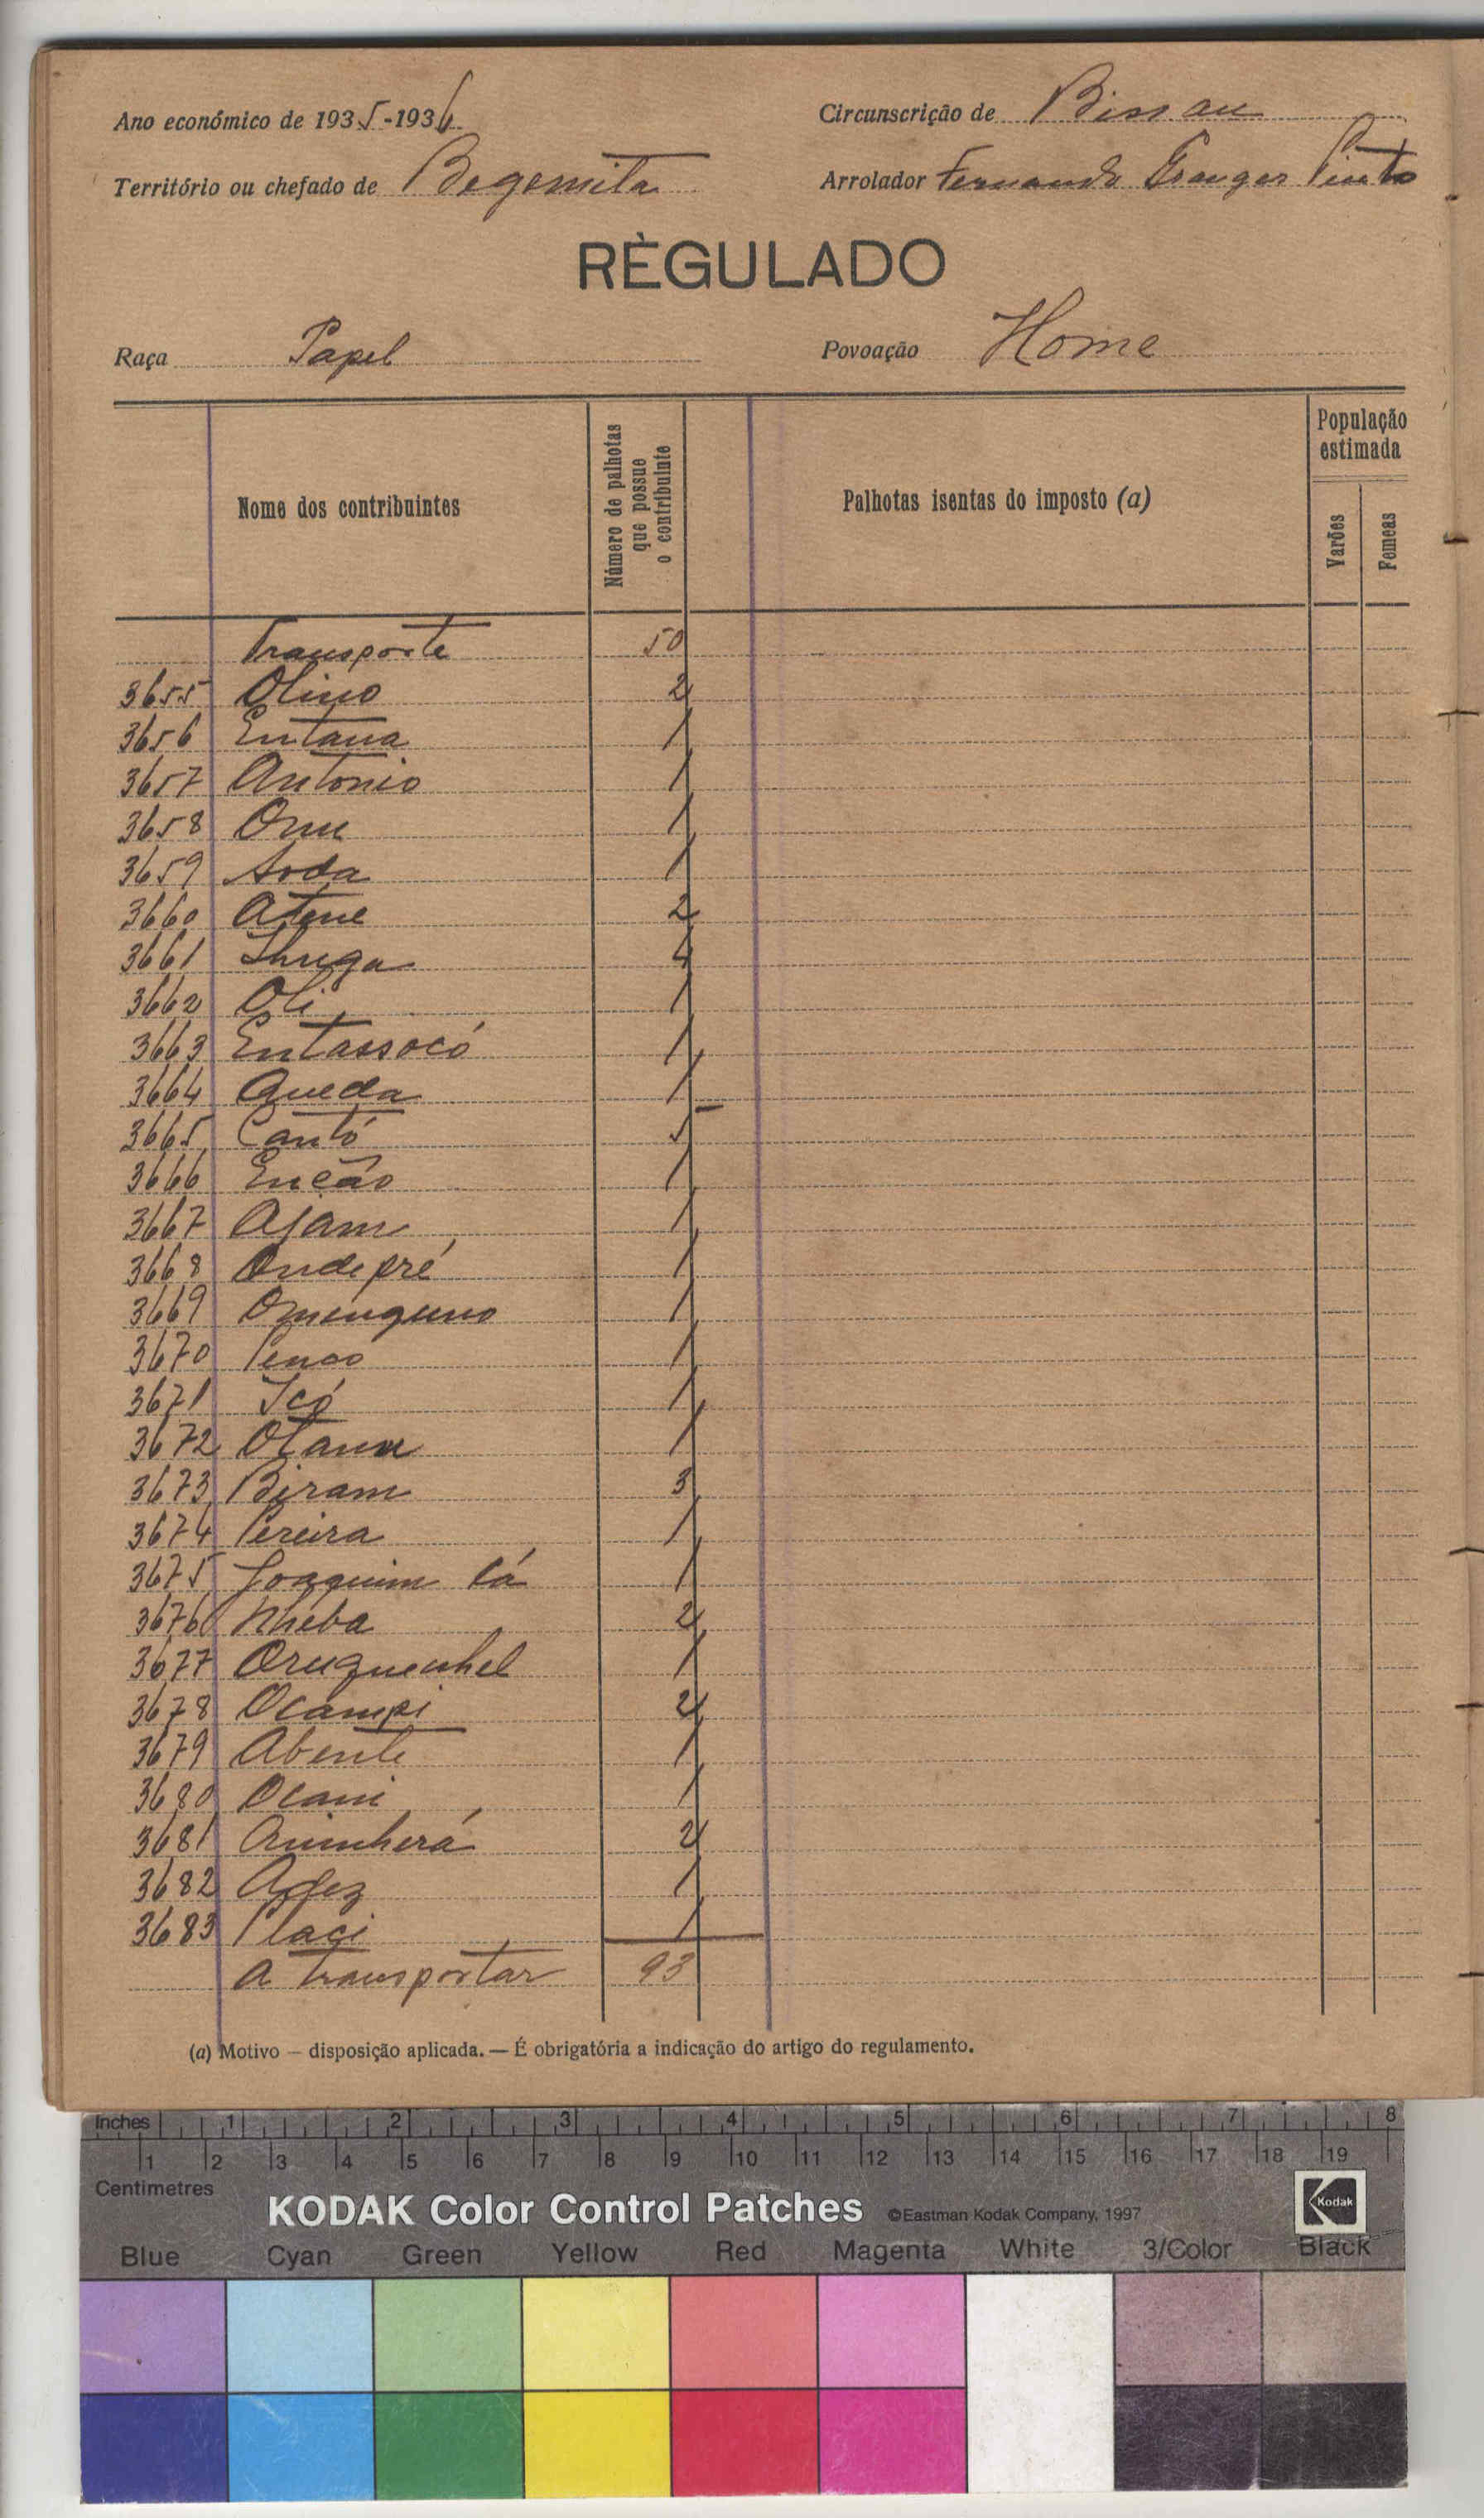 Ano económico de 1935-1936
Circunscrição de Bissau
Território ou chefado de Begemita
Arrolador Fernando Granger Pinto
RÈGULADO
Raça Papel
Povoação Home
Nome dos contribuintes
Número de palhotas que possue o contribuinte
Palhotas isentas do imposto (a)
População estimada
Varões
Femeas
Transporte 50
3655 Olino 2
3656 Entana 1
3657 Antonio 1
3658 Onu 1
3659 Anda 1
3660 Atene 2
3661 4
3662 Oli 1
3663 Entassocó 1
3664 Queda 1
3665 Cantó 5
3666 Encão 1
3667 Ajam 1
3668 Ondepré 1
3669 Omenguno 1
3670 Penco 1
3671 Icó 1
3672 Otana 1
3673 Biram 3
3674 Pereira 1
3675 Joaquim Cá 1
3676 Nheba 2
3677 Oruquenhel 1
3678 Ocampi 2
3679 Abente 1
3680 Ocani 1
3681 2
3682 1
3683 Placi 1
A transportar 93
(a) Motivo — disposição aplicada. — É obrigatória a indicação do artigo do regulamento.
Inches 1 2 3 4 5 6 7 8
1 2 3 4 5 6 7 8 9 10 11 12 13 14 15 16 17 18 19
Centimetres
KODAK Color Control Patches ©Eastman Kodak Company, 1997 Kodak
Blue Cyan Green Yellow Red Magenta White 3/Color Black